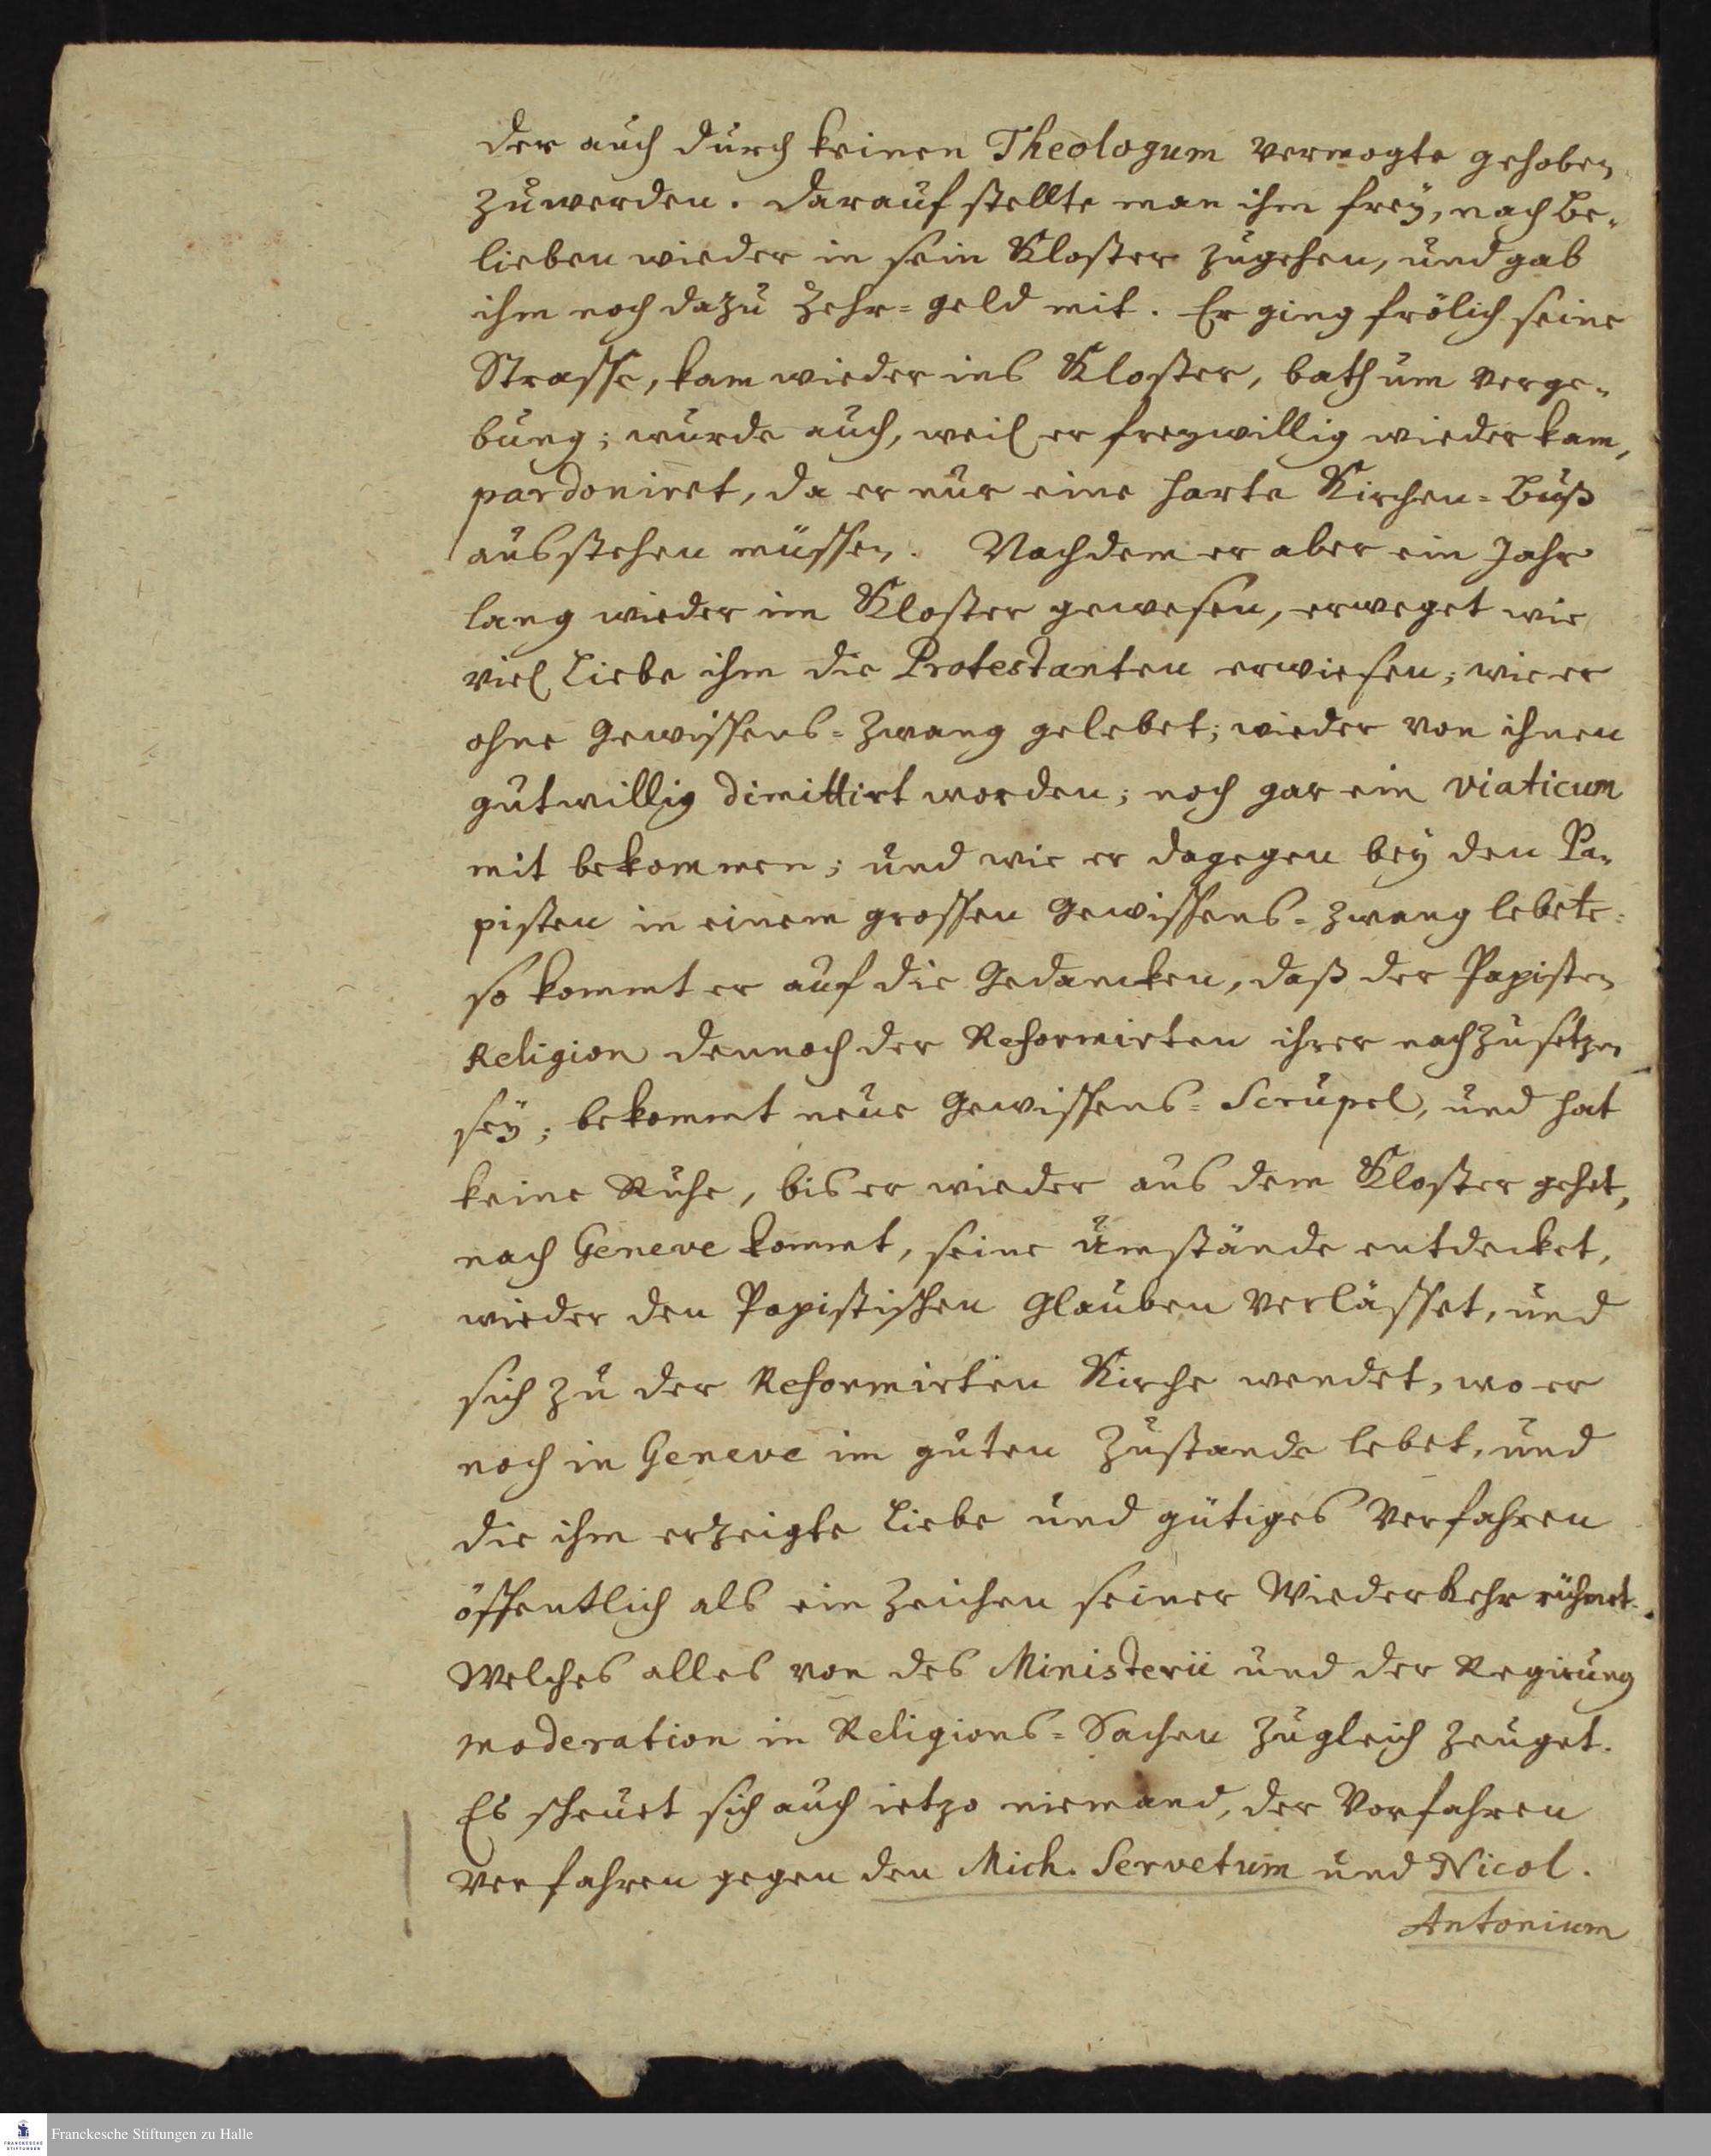 der auch durch keinen Theologum vermogte gehoben
zuwerden. Darauf stellte man ihm frey, nach Be-
lieben wieder in sein Kloster zugehen, und gab
ihm noch dazu Zehr=geld mit. Er ging frölich seine
Strasse, kam wieder ins Kloster, bath um Verge-
bung; wurde auch, weil er freywillig wieder kam,
pardoniret, da er nur eine harte Kirchen=Buß
ausstehen müssen. Nachdem er aber ein Jahr
lang wieder im Kloster gewesen, erweget wie
viel Liebe ihm die Protestanten erwiesen; wie er
ohne Gewissens=Zwang gelebet; wieder von ihnen
gutwillig dimittirt worden; noch gar ein viaticum
mit bekommen; und wie er dagegen bey den Pa-
pisten in einem grossen Gewissens=Zwang lebete:
so kommt er auf die Gedancken, daß der Papisten
Religion dennoch der Reformirten ihrer nachzusetzen
sey; bekommt neue Gewissens=Scrupel, und hat
keine Ruhe, bis er wieder aus dem Kloster gehet,
nach Geneve kommt, seine Umstände entdecket,
wieder den Papistischen Glauben verlässet, und
sich zu der Reformirten Kirche wendet, wo er
noch in Geneve im guten Zustande lebet, und
die ihm erzeigte Liebe und gütiges Verfahren
öffentlich als ein Zeichen seiner Wiederkehr rühmet.
Welches alles von des Ministerii und der Regirung
moderation in Religions=Sachen zugleich zeuget.
Es scheuet sich auch ietzo niemand, der Vorfahren
Verfahren gegen den Mich. Servetum und Nicol.
Antonium
Franckesche Stiftungen zu Halle
FRANCKESCHE
STIFTUNGEN